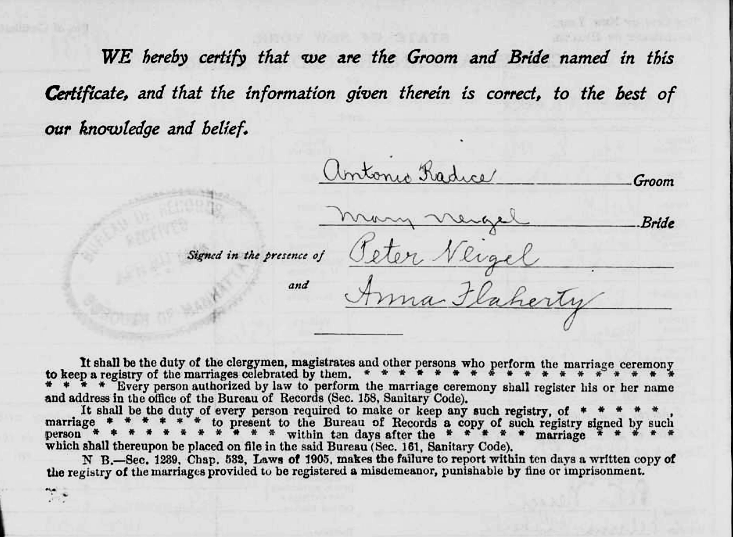 WE hereby certify that we are the Groom and Bride named in this
Certificate, and that the information given therein is correct, to the best of
our knowledge and belief.
Antonio Radice Groom
Mary Neigel Bride
BUREAU OF RECORDS
RECEIVED
BOROUGH OF MANHATTAN
Signed in the presence of Peter Neigel
and Anna Flaherty
It shall be the duty of the clergymen, magistrates and other persons who perform the marriage ceremony
to keep a registry of the marriages celebrated by them. * * * * * * * * * * * * * * * * *
* * * * Every person authorized by law to perform the marriage ceremony shall register his or her name
and address in the office of the Bureau of Records (Sec. 158, Sanitary Code).
It shall be the duty of every person required to make or keep any such registry, of * * * * * ,
marriage * * * * * * to present to the Bureau of Records a copy of such registry signed by such
person * * * * * * * * * * * within ten days after the * * * * marriage * * * * *
which shall thereupon be placed on file in the said Bureau (Sec. 161, Sanitary Code).
N B.—Sec. 1239, Chap. 532, Laws of 1905, makes the failure to report within ten days a written copy of
the registry of the marriages provided to be registered a misdemeanor, punishable by fine or imprisonment.